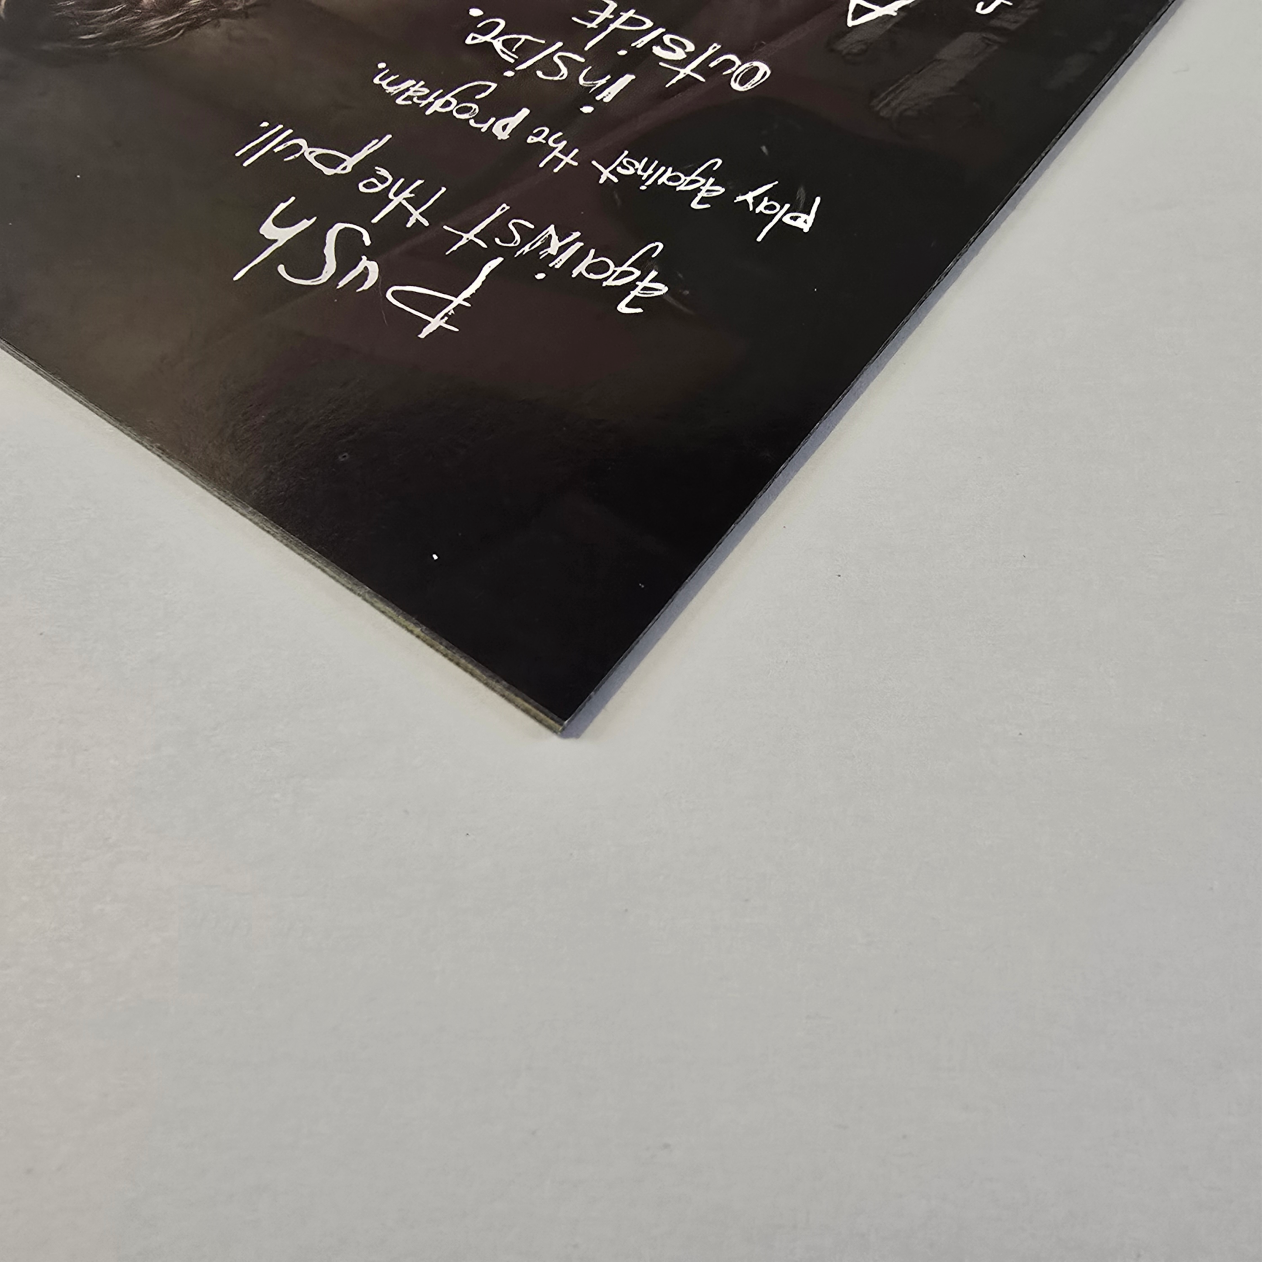 Push
against the pull.
play against the program.
inside.
outside
A